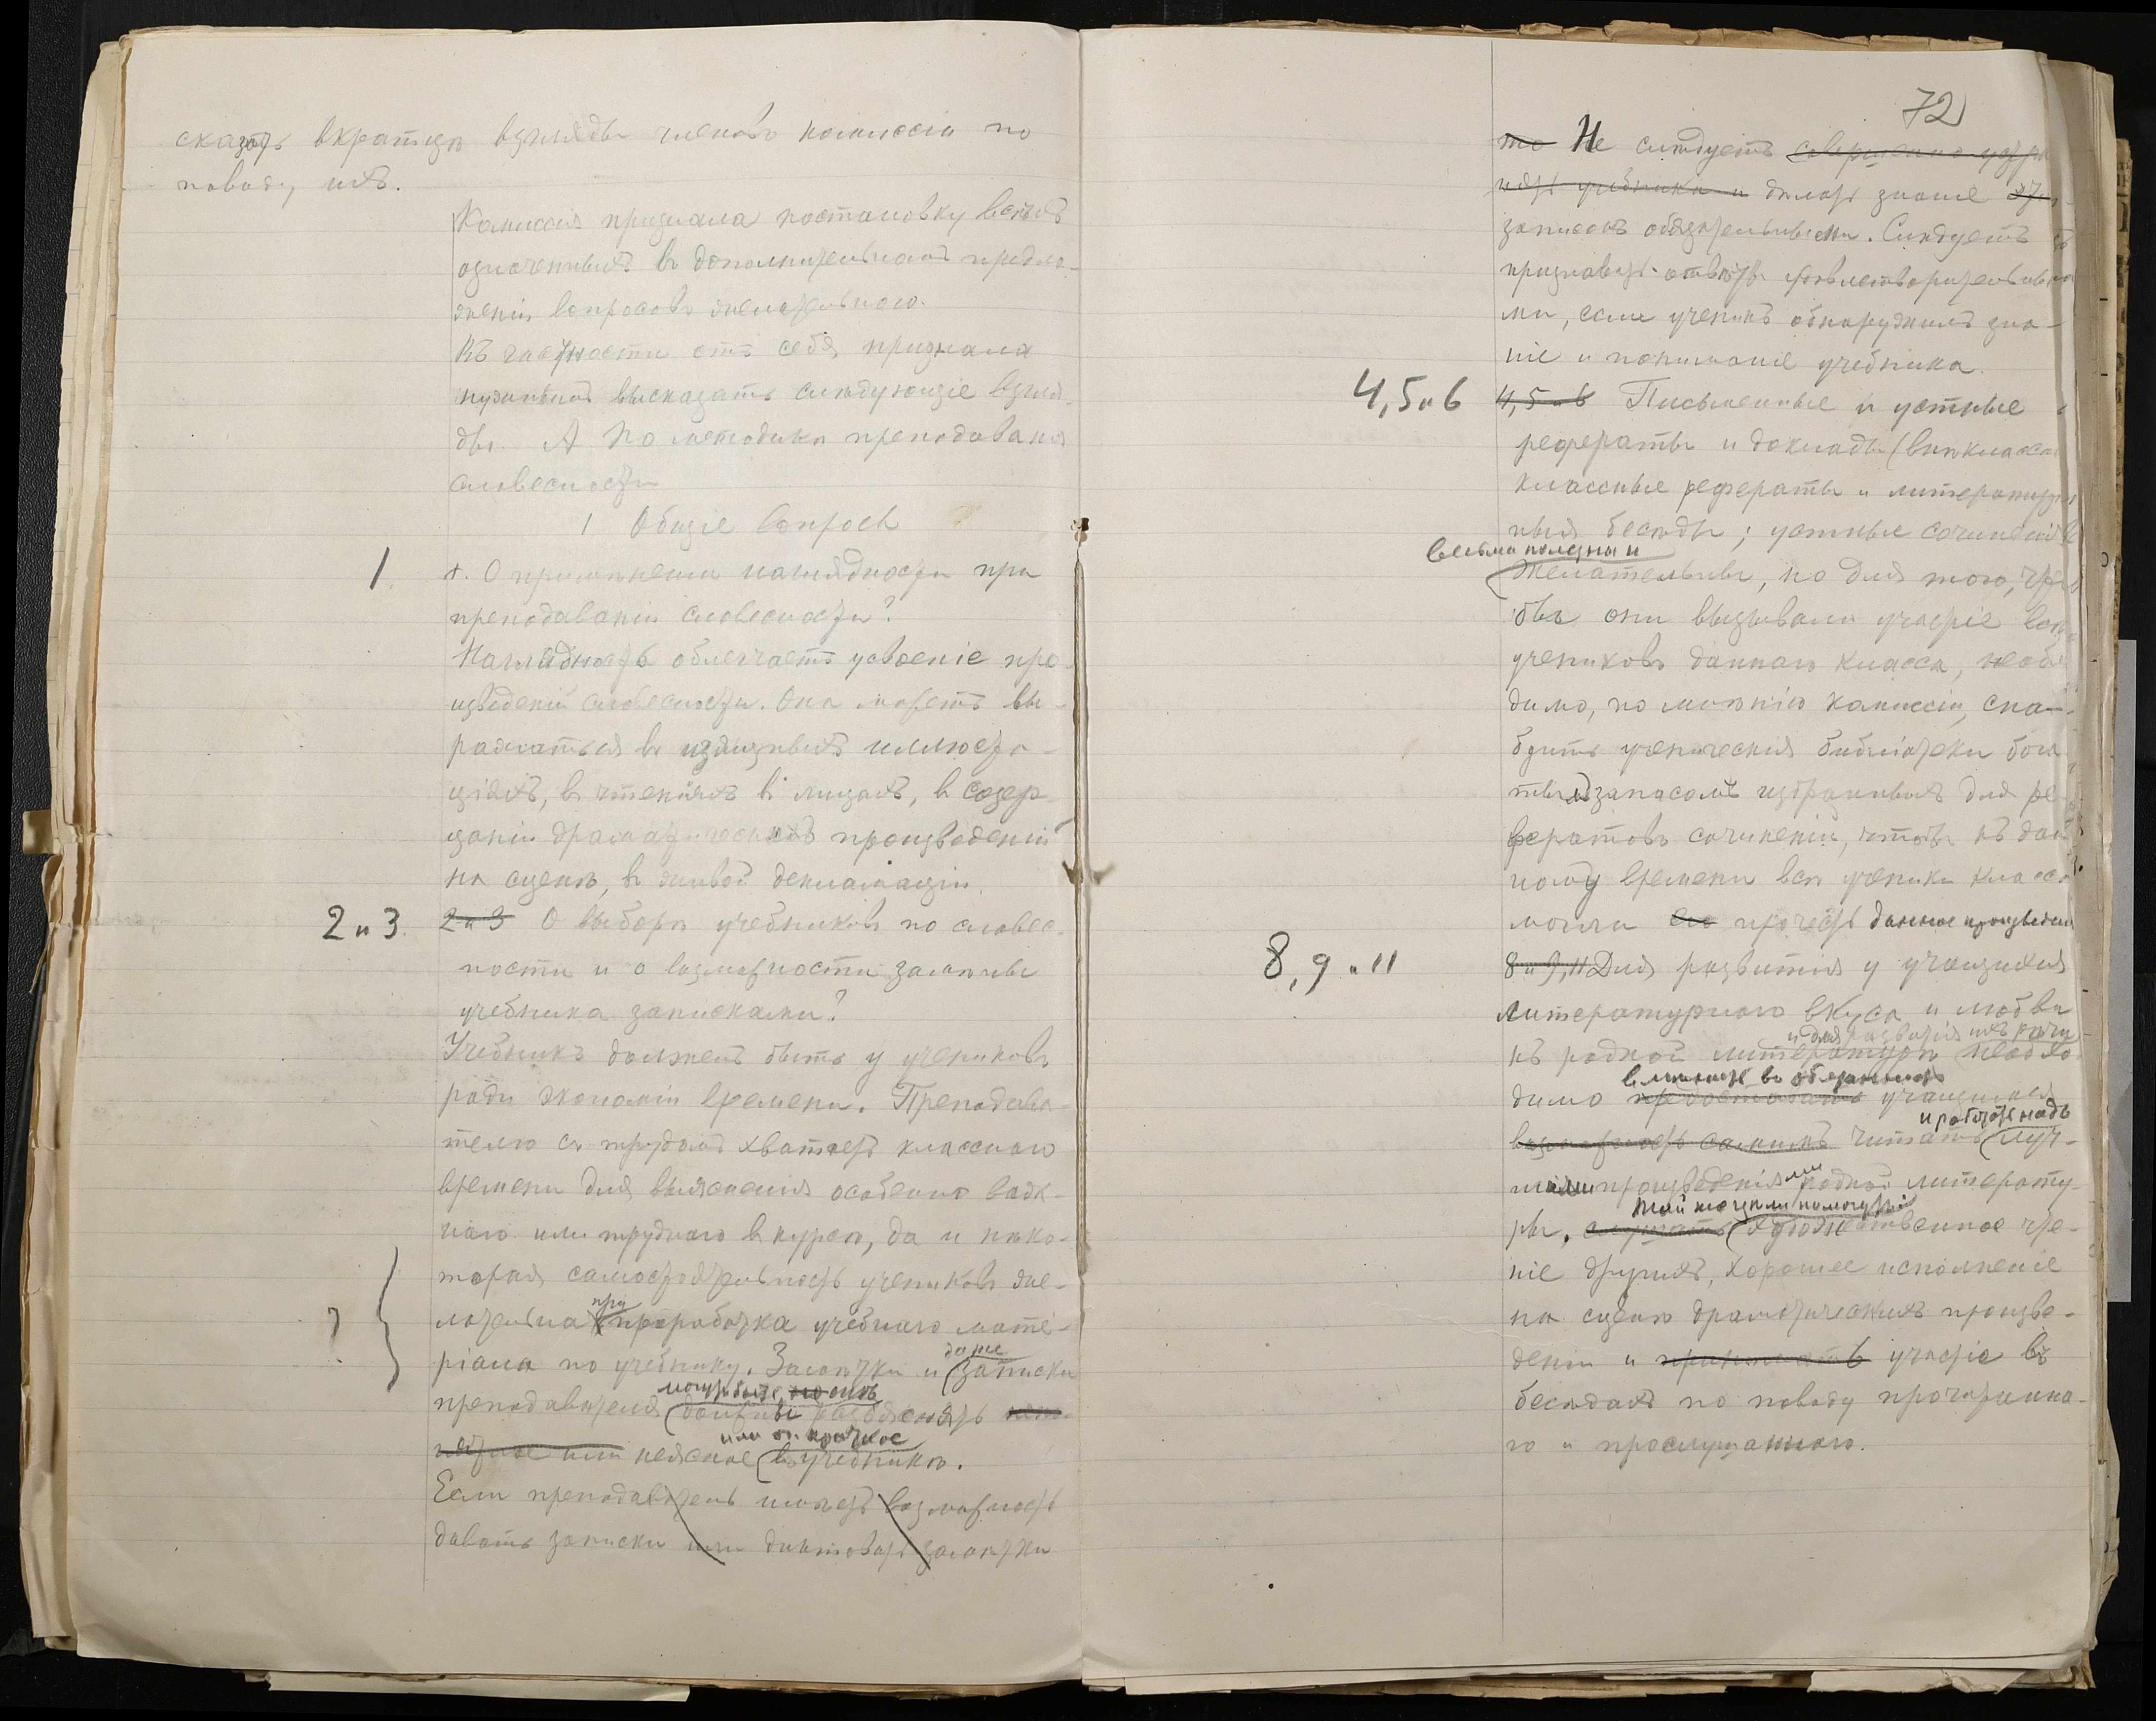 сказать вкратцѣ взгляды членовъ комиссіи по
поводу ихъ.
Комиссія признала постановку всѣхъ
означенныхъ въ дополнительномъ предло-
женіи вопросовъ желательною.
Въ частности отъ себя признала
нужнымъ высказать слѣдующіе взгля-
ды. А По методикѣ преподаванія
словесности
1 Общіе вопросы
1. 1. О примѣненіи наглядности при
преподаваніи словесности?
Наглядность облегчаетъ усвоеніе про-
изведеній словесности. Она можетъ вы-
ражаться въ изящныхъ иллюстра-
ціяхъ, въ чтеніяхъ въ лицахъ, въ созер-
цаніи драматическихъ произведеній
на сценѣ, въ живой декламаціи.
2 и 3. 2 и 3 О выборѣ учебниковъ по словес-
ности и о возможности замѣны
учебника записками?
Учебникъ долженъ быть у учениковъ
ради экономіи времени. Преподава-
телю съ трудомъ хватаетъ класснаго
времени для выясненія особенно важ-
наго или труднаго въ курсѣ, да и нѣко-
торая самостоятельность учениковъ же-
при
лательна проработка учебнаго мате-
даже
ріала по учебнику. Замѣтки и записки
могутъ быть
преподавателя должны разъяснять
или
неясное въ учебникѣ.
Если преподаватель имѣетъ возможность
давать записки или диктовать замѣтки
72
то Не слѣдуетъ совершенно устра
нять учебника и дѣлать знаніе
записокъ обязательными. Слѣдуетъ
признавать отвѣтъ удовлетворительны
ми, если ученикъ обнаружилъ зна-
ніе и пониманіе учебника.
4, 5 и 6 4, 5 и 6 Письменные и устные
рефераты и доклады (внѣкласс
классные рефераты и литератур
ныя бесѣды; устные сочиненія
весьма полезны и
желательны, но для того, что
бы они вызывали участіе всѣ
учениковъ даннаго класса, необх
димо, по мнѣнію комиссіи, сна-
бдить ученическія библіотеки бога
тымъ запасомъ избранныхъ для ре-
фератовъ сочиненій, чтобы къ дан
ному времени всѣ ученики класса
могли его прочесть данное произведен
8, 9 и 11 8 и 9, 11 Для развитія у учащихся
литературнаго вкуса и любви
и для развитія ихъ рѣчи
къ родной литературѣ необхо-
вмѣнить въ обязанность
димо предоставить учащимся
и работать надъ
возможность самимъ читать луч-
шими произведеніями родной литерату-
ры. слушать Художественное чте-
ніе другихъ, хорошее исполненіе
на сценѣ драматическихъ произве-
деній и принимать участіе въ
бесѣдахъ по поводу прочитанна-
го и прослушаннаго.